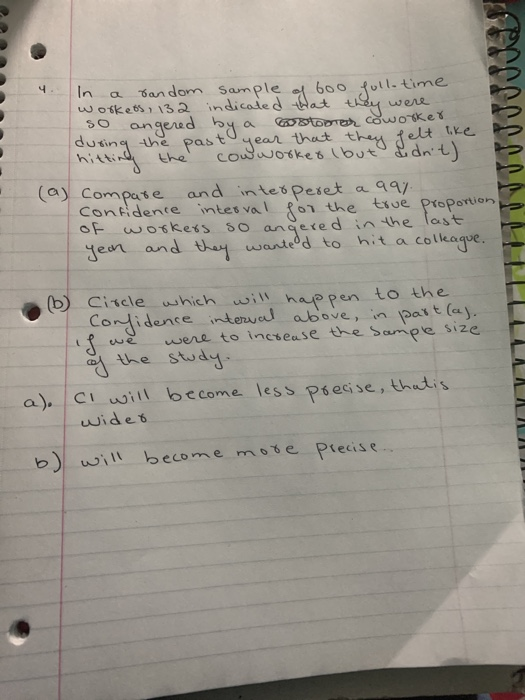 4. In a random sample of 600 full-time
workers, 132 indicated that they were
so angered by a coworker
during the past year that they felt like
hitting the cowworker (but didn't)
(a) Compare and interperet a 99%
Confidence interval for the true proportion
OF workers so angered in the last
year and they wanted to hit a colleague.
(b) Circle which will happen to the
Confidence interval above, in part (a).
if we were to increase the sample size
of the study.
a). CI will become less precise, thatis
wider
b) will become more precise..